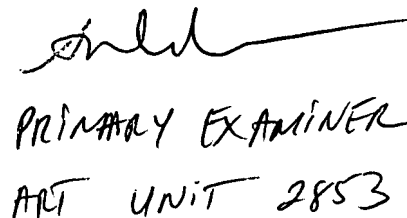 PRIMARY EXAMINER
ART UNIT 2853